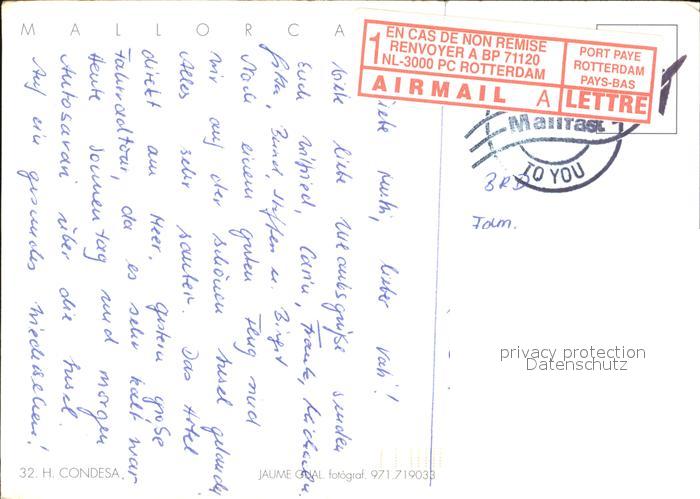 MALLORCA
EN CAS DE NON REMISE
1 RENVOYER A BP 71120
NL-3000 PC ROTTERDAM
PORT PAYE
ROTTERDAM
PAYS-BAS
AIRMAIL A LETTRE
Mailfast
TO YOU
BRD
Fam.
liebe Mutti, lieber Vati!
Viele liebe Urlaubsgrüße senden
Euch Wilfried, Carin, Frank,
und Steffen u. Birgit
Nach einem guten Flug sind
wir auf der schönen Insel gelandet
Alles sehr sauber. Das Hotel
direkt am Meer. Gestern große
Fahrradtour, da es sehr kalt war
Heute Sonnentag und morgen
Autosafari über die Insel.
Auf ein gesundes Wiedersehen!
privacy protection
Datenschutz
32. H. CONDESA.
JAUME GUAL. fotògraf. 971.719033